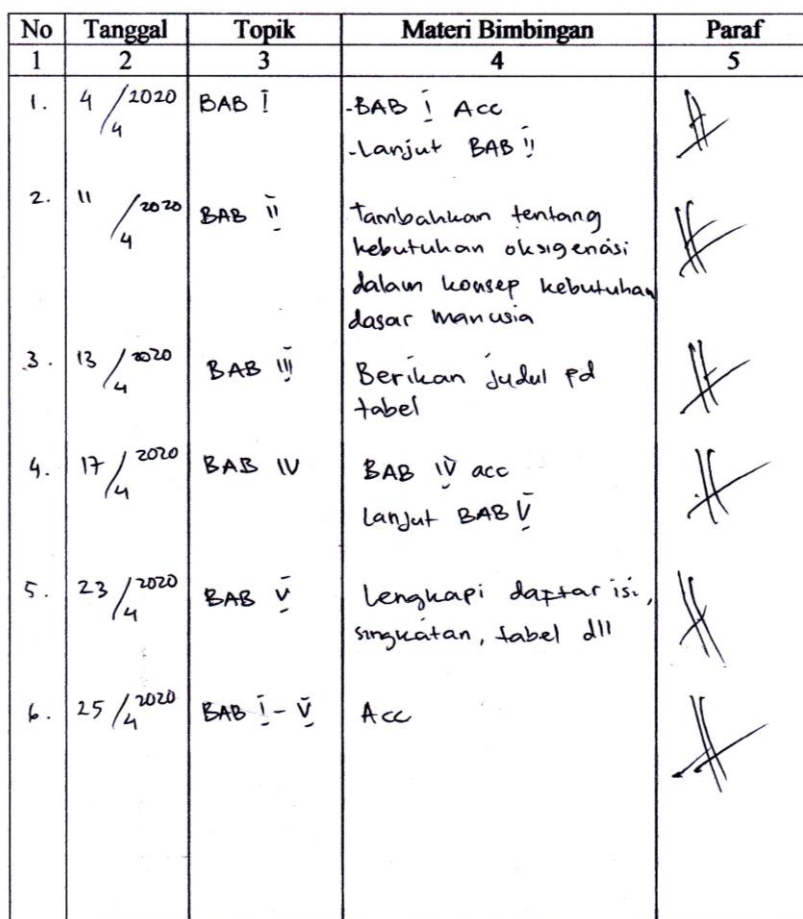 No Tanggal Topik Materi Bimbingan Paraf
1 2 3 4 5
1. 4/4 2020 BAB I -BAB I Acc
-Lanjut BAB II
2. 11/4 2020 BAB II Tambahkan tentang
kebutuhan oksigenasi
dalam konsep kebutuhan
dasar manusia
3. 13/4 2020 BAB III Berikan judul pd
tabel
4. 17/4 2020 BAB IV BAB IV acc
Lanjut BAB V
5. 23/4 2020 BAB V Lengkapi daftar isi,
singkatan, tabel dll
6. 25/4 2020 BAB I - V Acc